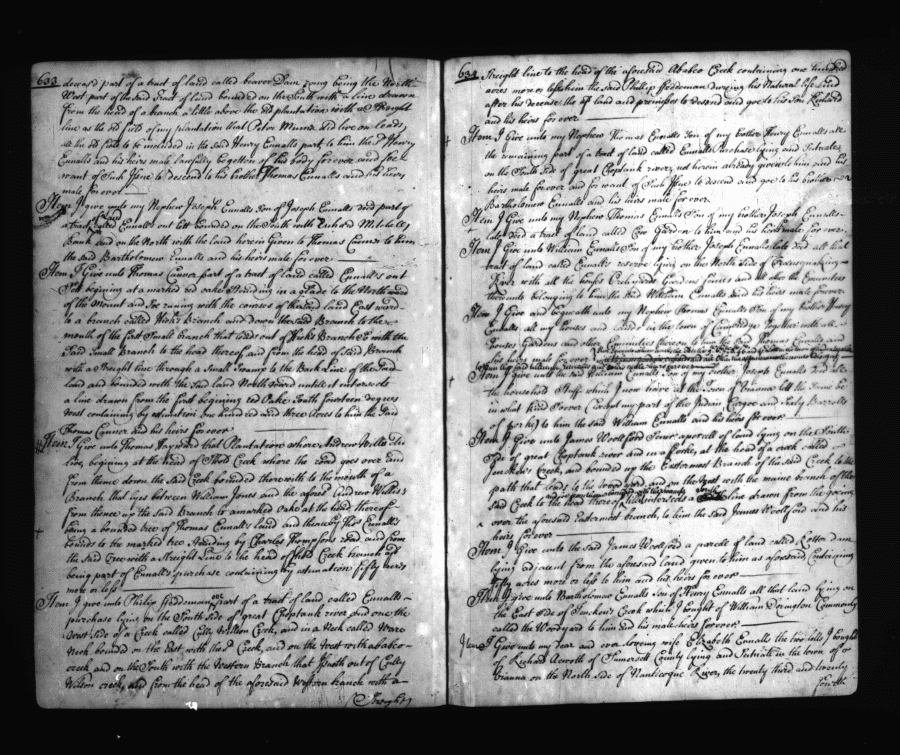 633
deceasd part of a tract of land called beaver Dam being the North
West part of the said Tract of land bounded on the South with a line drawn
from the head of a branch a little above the sd plantation with a Streight
line as the sd field of my plantation that Peter Mimms did live on leads,
all the sd field to be included in the said Henry Ennalls part, to him the sd Henry
Ennalls and his heirs male Lawfully begotten of his body for ever and for
want of Such Issue to descend to his brother Thomas Ennalls and his heirs
male for ever
Item I give unto my Nephew Joseph Ennalls Son of Joseph Ennalls decd part of
a tract of Land called Ennalls out lett bounded on the South with Richard Mitchells
Bank and on the North with the land herein Given to Thomas Cannor to him
the said Bartholomew Ennalls and his heirs male for ever
Item I Give unto Thomas Cannor part of a tract of land called Ennalls out
lett begining at a marked red oake Standing in a glade to the North ward
of the Mount and for runing with the courses of the said land East ward
to a branch called Hicks Branch and down the said Branch to the
mouth of the first Small branch that leads out of Hicks Branch So with the
Said Small Branch to the head thereof and from the head of said Branch
with a Streight line through a Small Swamp to the Back Line of the said
land and bounded with the said land North ward untill it intersects
a line drawn from the first begining red Oake South fourteen degrees
West containing by estimation one hundred and three Acres to him the said
Thomas Cannor and his heirs for ever
Item I Give unto Thomas Hayward that Plantation where Andrew Willis did
live, begining at the head of Shoal Creek where the road goes over and
from thence down the said Creek bounded therewith to the mouth of a
Branch that lyes between William Jones and the aforesd Andrew Willis's
from thence up the said Branch to a marked Oake at the head thereof
being a bounded tree of Thomas Ennalls land and thence by Thos Ennalls
bounds to the marked tree Standing by Charles Thompsons road and from
the said Tree with a Streight Line to the head of Shoal Creek
being part of Ennalls purchase containing by estimation fifty acres
more or less
Item I give unto Philip Fedderman one part of a tract of land called Ennalls
purchase lying on the South Side of great Choptank river and on the
West side of a Creek called Cully Wilson Creek, and in a Neck called Ware
Neck bounded on the East with the sd Creek, and on the West with abaco
creek and on the South with the Western Branch that Issueth out of Cully
Wilson creek, and from the head of the aforesaid Western branch with a
Streight
634
Streight line to the head of the aforesaid Abaco Creek containing one hundred
acres more or less to him the said Philip Fedderman during his Natural life and
after his decease the sd land and premisses to descend and goe to his Son Richard
and his heirs for ever
Item I Give unto my Nephew Thomas Ennalls Son of my brother Henry Ennalls all
the remaining part of a tract of land called Ennalls Purchase lying and Situate
on the South Side of great Choptank river, not herein already given to him and his
heirs male for ever and for want of Such Issue to descend and goe to his brother
Bartholomew Ennalls and his heirs male for ever
Item I Give unto my Nephew Thomas Ennalls Son of my brother Joseph Ennalls
late decd a tract of land called Cow Garden to him and his heirs male for ever
Item I Give unto William Ennalls Son of my brother Joseph Ennalls late decd all that
tract of land called Ennalls reserve lying on the North side of Transquaking
River with all the houses Orchards Gardens fences and all other the Emunities
thereunto belonging to him the said William Ennalls and his heirs male forever
Item I Give and bequeath unto my Nephew Thomas Ennalls Son of my brother Henry
Ennalls all my houses and Land in the town of Cambridge Together with all
houses Gardens and other Emunities thereon to him the said Thomas Ennalls and
his heirs male for ever
Item I Give unto William Ennalls Son of my brother Joseph Ennalls decd all
the household Stuff which I now have at the Town of Vianna let the Same be
in what kind Soever (except my part of the Indian Cargoe and forty Barrells
of pork) to him the said William Ennalls and his heirs for ever
Item I Give unto James Woolford Senor a parcell of land lying on the South
Side of great Choptank river and in a forke, at the head of a creek called
Jenckins Creek, and bounded up the Eastermost Branch of the said Creek to the
path that leads to the wood yard, and on the West with the maine branch of the
said Creek to the head thereof till intersects a line drawn from the going
over the aforesaid Eastermost branch, to him the said James Woolford and his
heirs for ever
Item I Give unto the said James Woolford a parcell of land called Rotten dam
lying adjacent from the aforesaid land given to him as aforesaid Containing
fifty acres more or less to him and his heirs for ever
Item I give unto Bartholomew Ennalls Son of Henry Ennalls all that land lying on
the East Side of Jenckins Creek which I bought of William Dorington Commonly
called the Woodyard to him and his male heirs for ever
Item I Give unto my dear and ever loving wife Elizabeth Ennalls the two lotts I bought
of Richard Acworth of Sumersett County lying and Situate in the town of
Vianna on the North Side of Nanticoque River, the twenty third and twenty
fourth